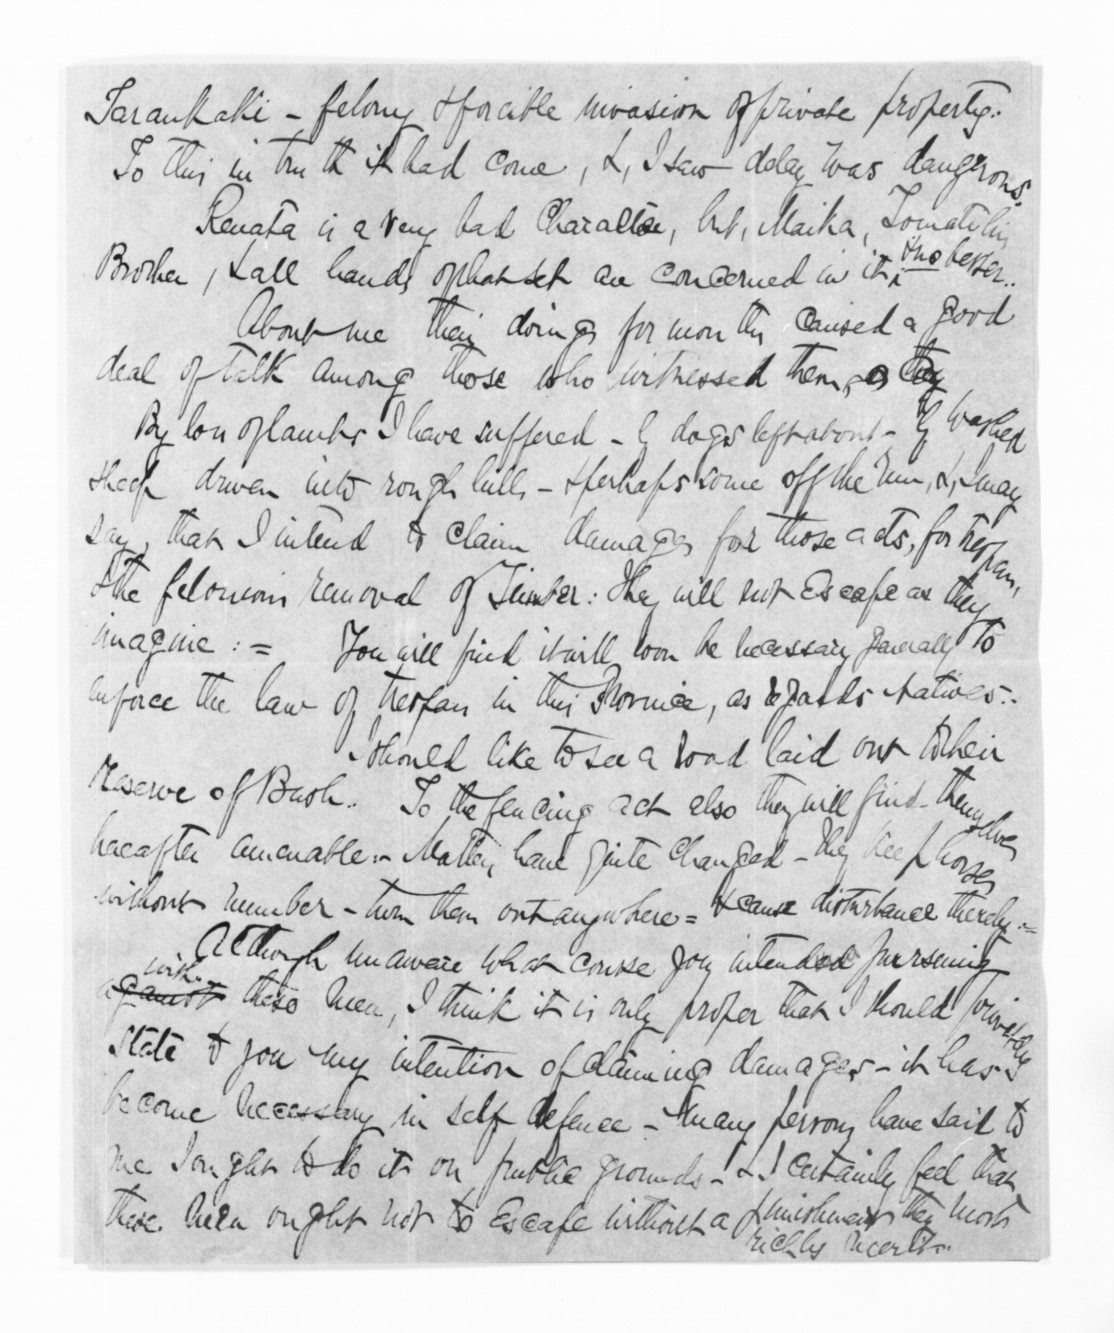 Tarankaki - felony & forcible invasion of private property:
To this in truth it had come, &, I saw delay was dangerous.
Renata is a very bad Character, but, Maika, Tomatu his
Brother, & all hands of that set are concerned in it; & no better..
About me their doings for months caused a good
deal of talk among those who witnessed them, as they
By loss of lambs I have suffered - by dogs left about - by washed
sheep driven into rough hills - & perhaps some off the run, &, I may
say, that I intend to claim damages for those acts, for trespass,
& the felonious removal of Timber: They will not Escape as they
imagine := You will find it will soon be necessary generally to
enforce the law of trespass in this Province, as regards Natives:.
I should like to see a road laid out to their
Reserve of Bush.. To the fencing act also they will find themselves
hereafter amenable:- Matters have quite changed - they keep horses
without number - turn them out anywhere = & cause disturbance thereby :=
Although unaware what course you intended pursuing
with
against these men, I think it is only proper that I should privately
State to you my intention of claiming damages - it has
become necessary in self defence - Many persons have said to
me I ought to do it on public grounds - & I certainly feel that
these men ought not to Escape without a punishment they most
richly merit:-